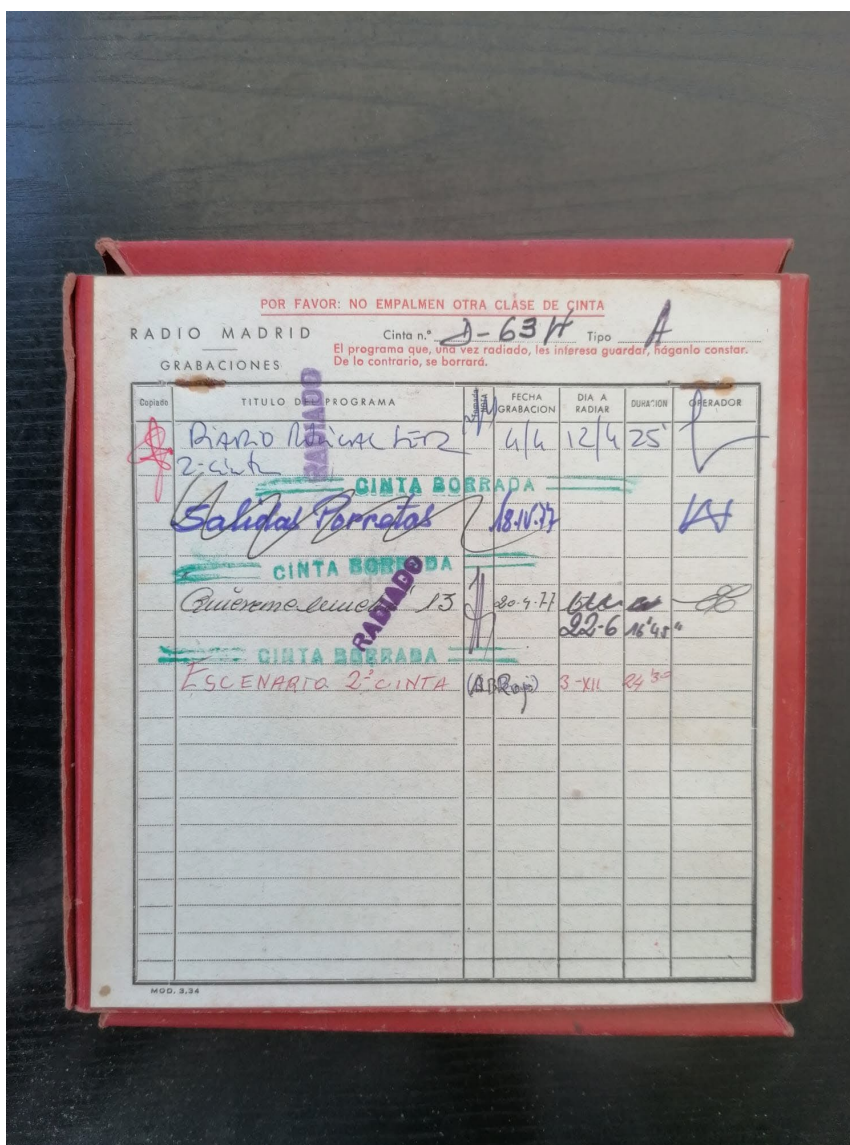 POR FAVOR: NO EMPALMEN OTRA CLASE DE CINTA
RADIO MADRID
GRABACIONES
Cinta n.º D-63 Tipo A
El programa que, una vez radiado, les interesa guardar, háganlo constar.
De lo contrario, se borrará.
Copiado TITULO DEL PROGRAMA FECHA GRABACION DIA A RADIAR DURACION OPERADOR
RADIADO
DIARIO 4/4 12/4 25'
2ª cinta
CINTA BORRADA
Salidas Porretas 18-IV-77
CINTA BORRADA
RADIADO
13 20-4-77
22-6 16'45"
CINTA BORRADA
ESCENARIO 2ª CINTA 3-XII
MOD. 3.34